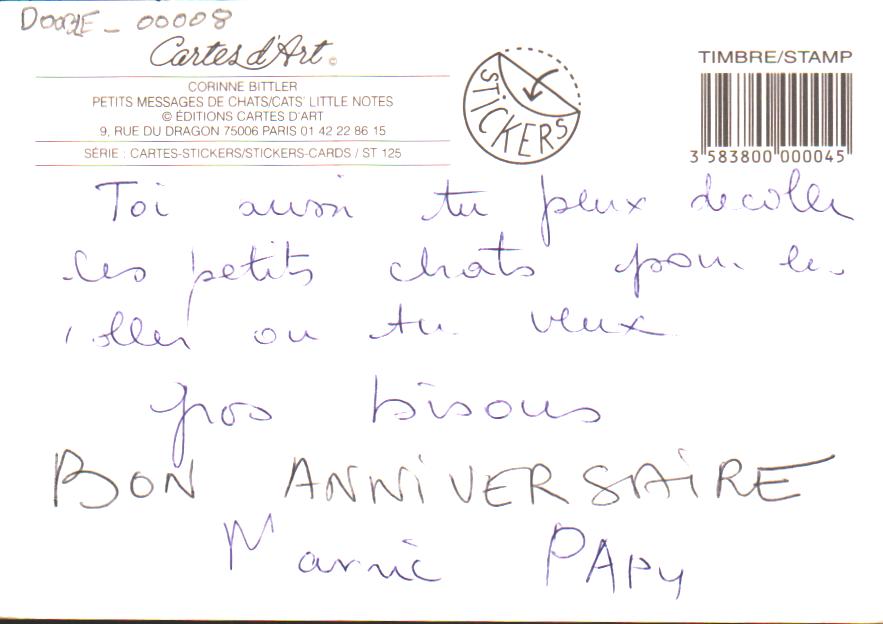 DOOBLE_00008
Cartes d'Art ©
CORINNE BITTLER
PETITS MESSAGES DE CHATS/CATS' LITTLE NOTES
© ÉDITIONS CARTES D'ART
9, RUE DU DRAGON 75006 PARIS 01 42 22 86 15
SÉRIE : CARTES-STICKERS/STICKERS-CARDS / ST 125
STICKERS
TIMBRE/STAMP
3 583800 000045
Toi aussi tu peux decoller
les petits chats pour les
coller ou tu veux
gros bisous
BON ANNIVERSAIRE
Mamie PAPY